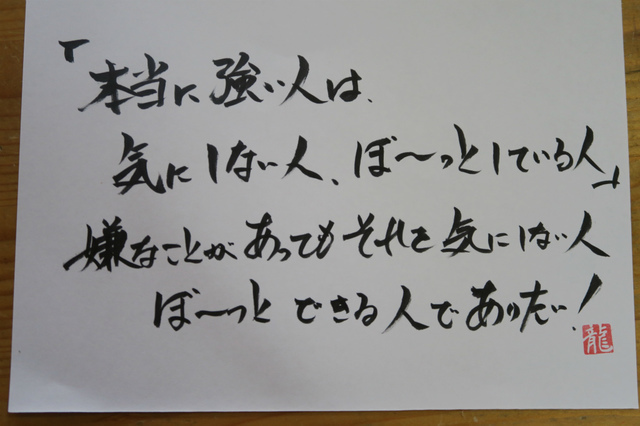 「本当に強い人は、
気にしない人、ぼ〜っとしている人」
嫌なことがあってもそれを気にしない人
ぼ〜っとできる人でありたい！
龍